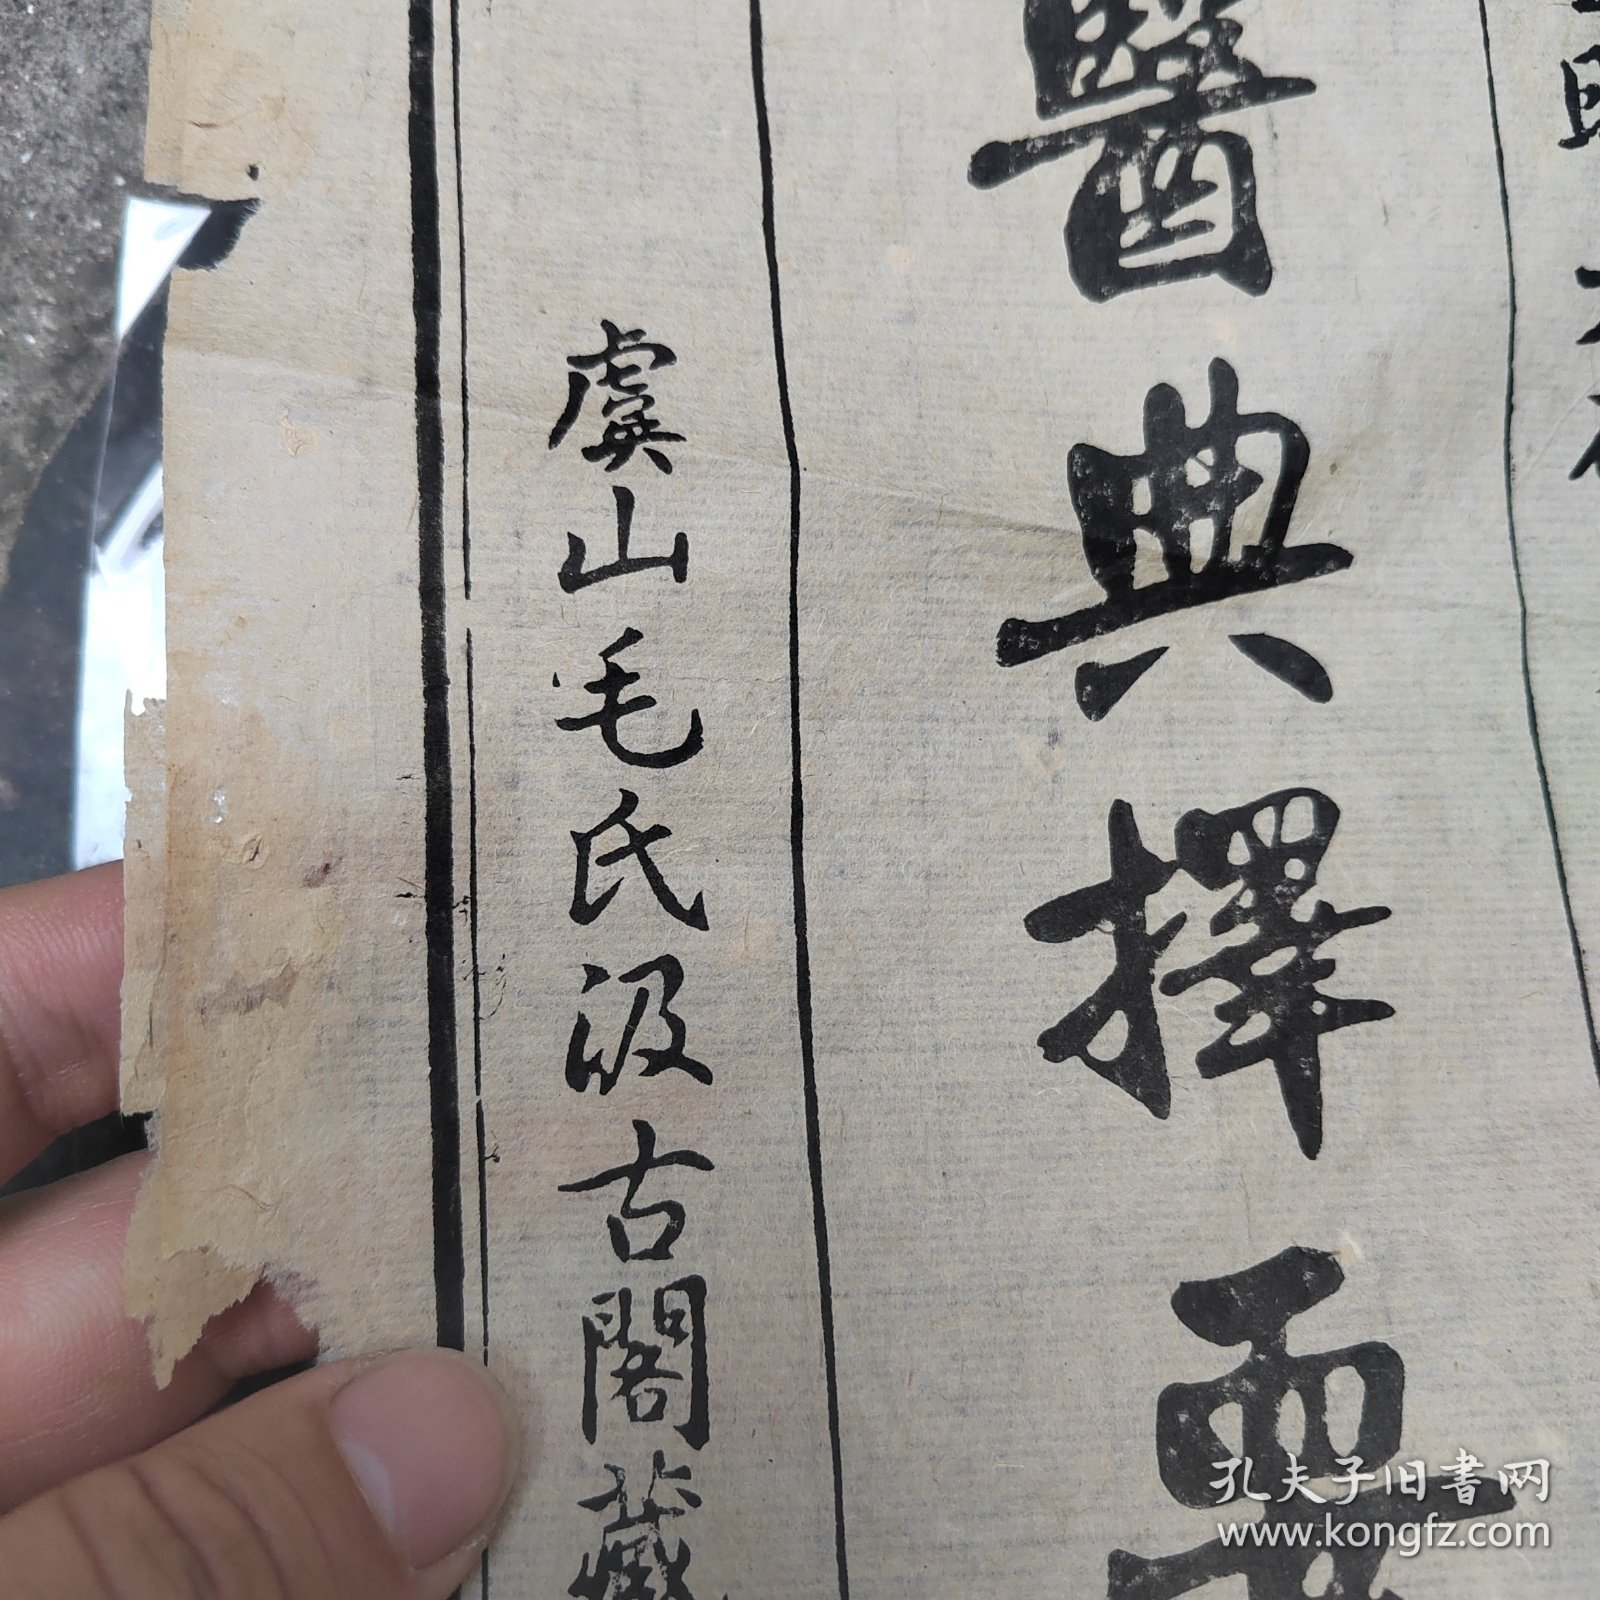 醫典擇要
虞山毛氏汲古閣藏
孔夫子旧書网
www.kongfz.com